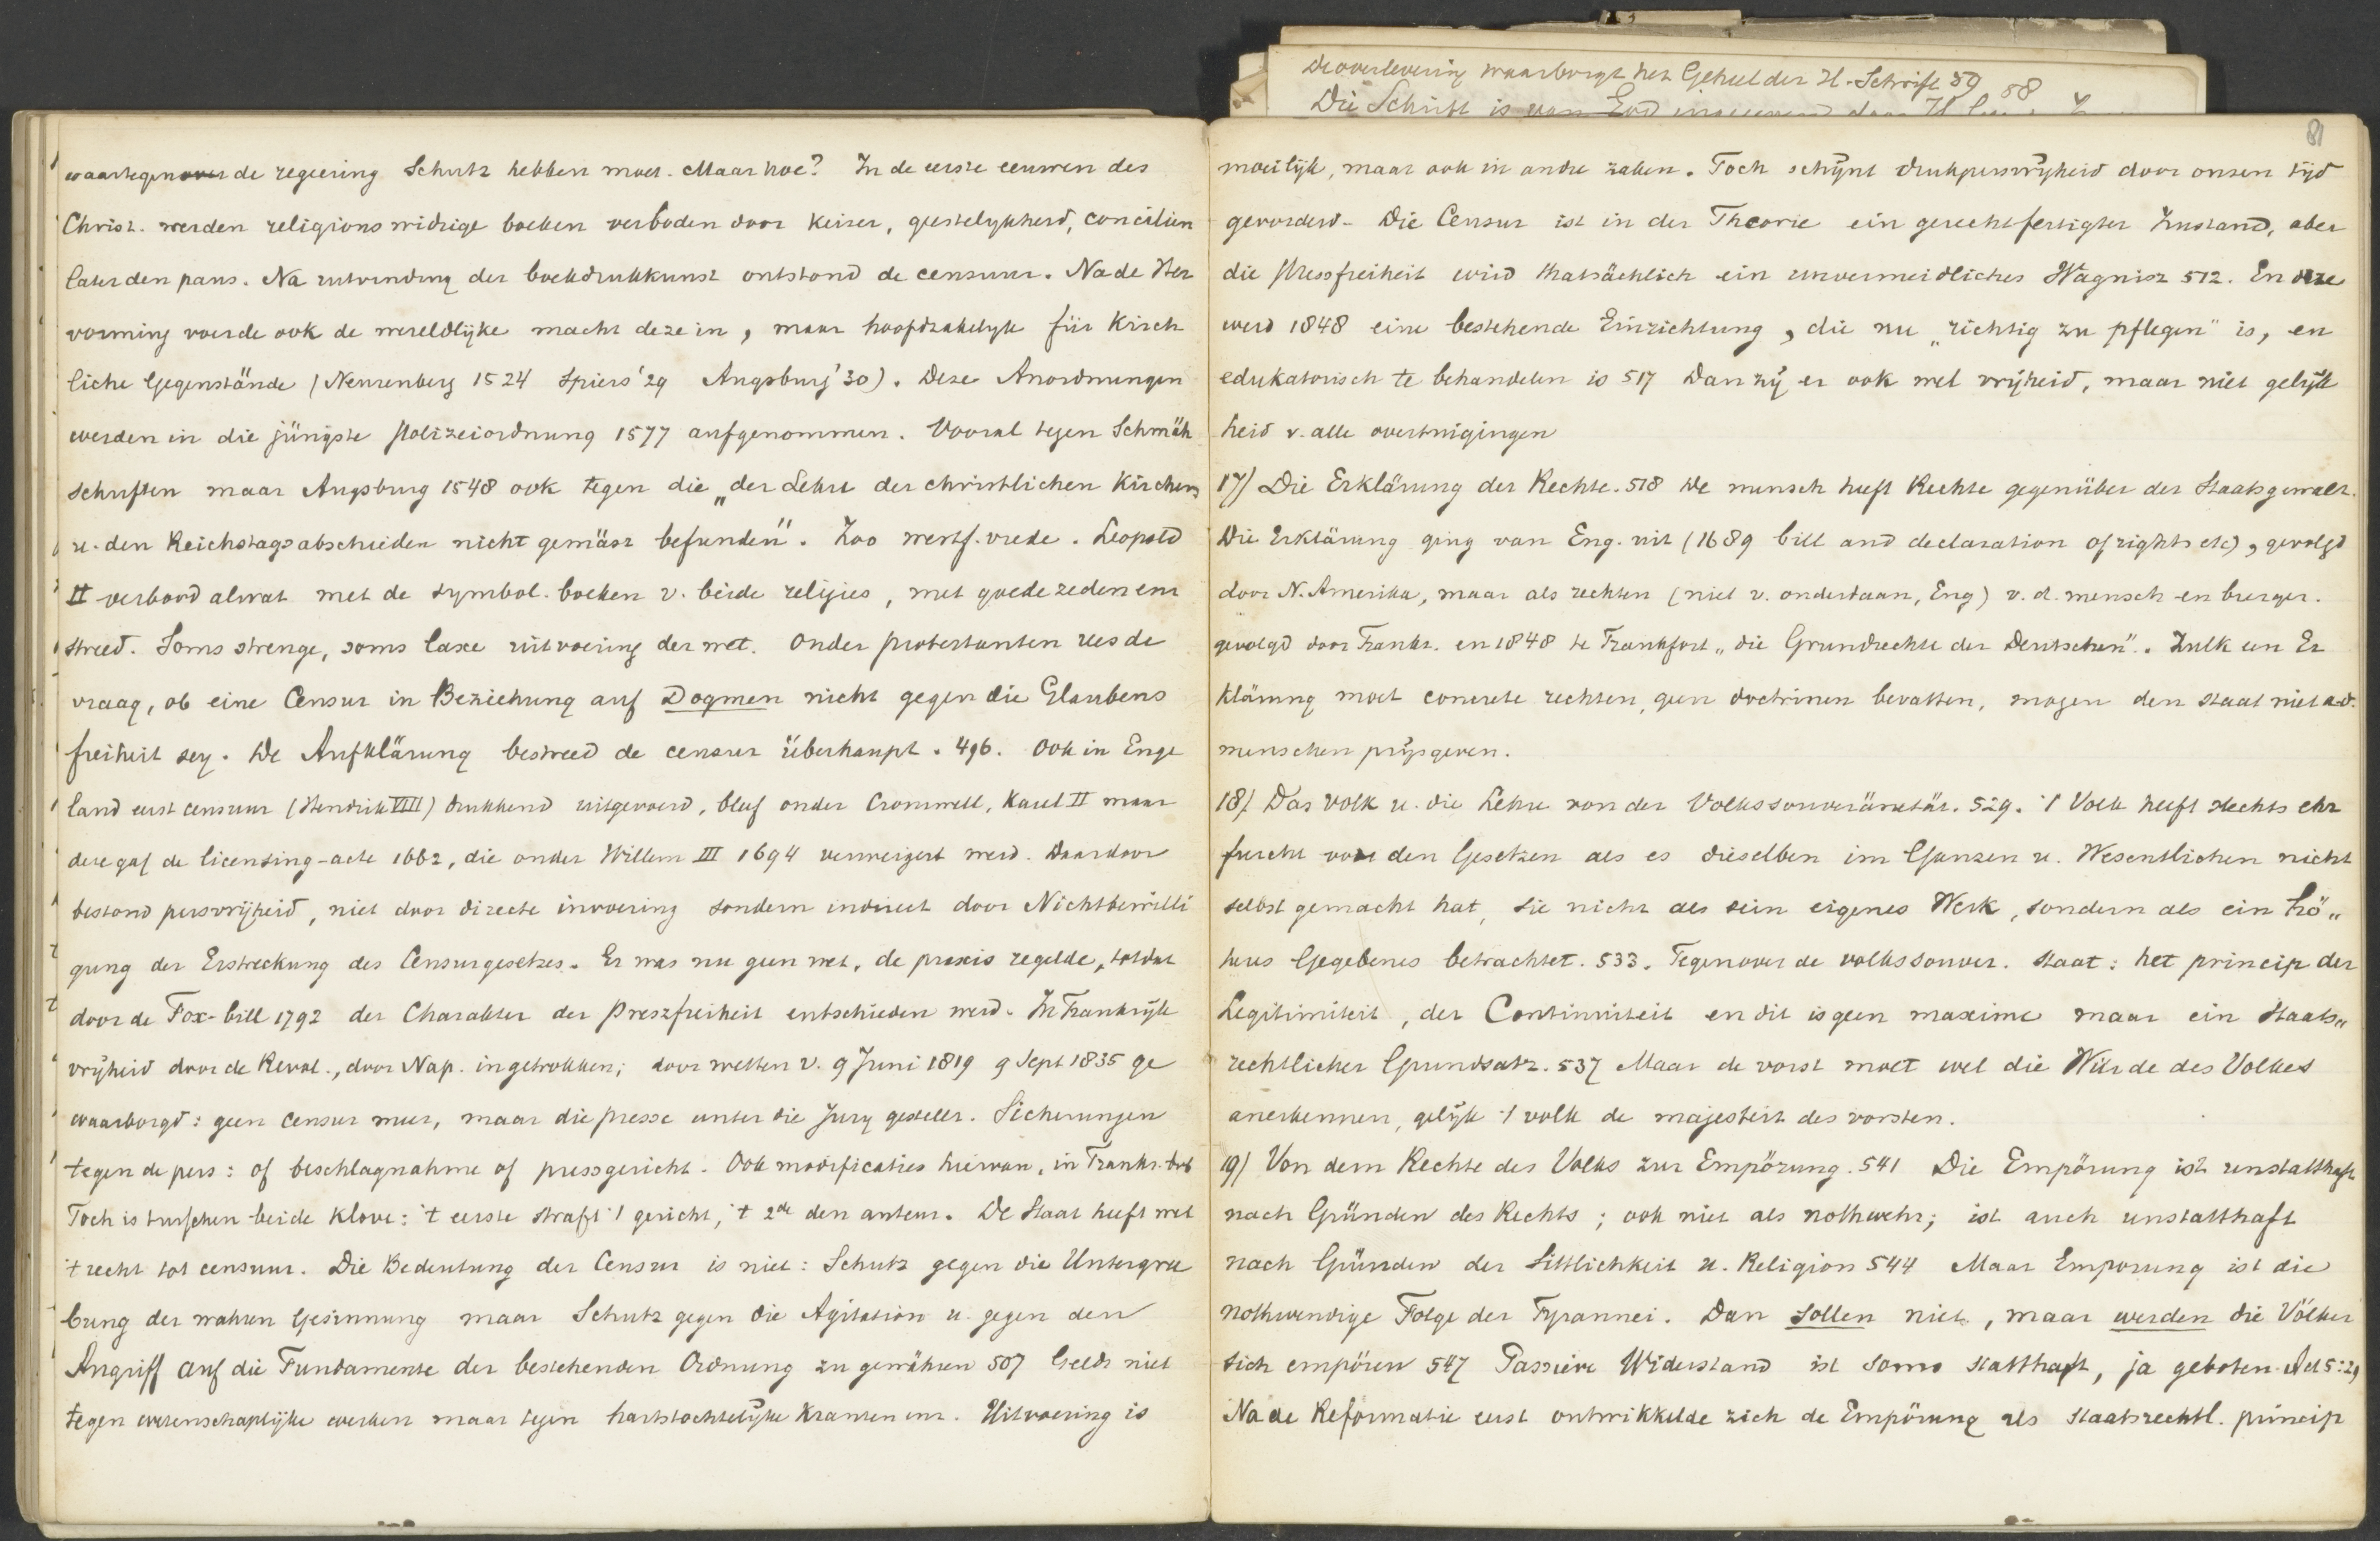 De overlevering waarborgt het Geheel der H. Schrift 59
58
Die Schrift is van God
waartegenover de regiering Schutz hebben moet. Maar hoe? In de eerste eeuwen des
Christ. werden religionswidrige boeken verboden door keizer, geestelykheid, concilien
later den paus. Na uitvinding der boekdrukkunst ontstond de censuur. Na de Her
vorming voerde ook de wereldlijke macht deze in, maar hoofdzakelyk für Kirch
liche Gegenstände (Neurenberg 1524 Spiers '29 Augsburg '30). Deze Anordnungen
werden in die jüngste Polizeiordnung 1577 aufgenommen. Vooral tegen Schmäh
schriften maar Augsburg 1548 ook tegen die „der Lehre der christlichen Kirchen
u. den Reichstagsabschieden nicht gemäsz befunden". Zoo westf. vrede. Leopold
II verbood alwat met de symbol. boeken v. beide religies, met goede zeden enz
streed. Soms strenge, soms laxe uitvoering der wet. Onder protestanten rees de
vraag, ob eine Censur in Beziehung auf Dogmen nicht gegen die Glaubens
freiheit sey. De Aufklärung bestreed de censur überhaupt. 496. Ook in Enge
land eerst censuur (Hendrik VIII) drukkend uitgevoerd, bleef onder Cromwell, Karel II maar
deze gaf de licensing-acte 1662, die onder Willem III 1694 verweigert werd. Daardoor
bestond persvrijheid, niet door directe invoering sondern indirect door Nichtbewilli
gung der Erstreckung des Censurgesetzes. Er was nu geen wet, de praxis regelde, totdat
door de Fox-bill 1792 der Charakter der Preszfreiheit entschieden werd. In Frankrijk
vrijheid door de Revol., door Nap. ingetrokken; door wetten v. 9 Juni 1819 9 Sept 1835 ge
waarborgd: geen Censur meer, maar die presse unter die Jury gestellt. Sicherungen
tegen de pers: of beschlagnahme of pressgericht. Ook modificaties hiervan, in Frankr.
Toch is tusschen beide klove: 't eerste straft 't gericht, 't 2de den auteur. De Staat heeft wel
't recht tot censuur. Die Bedeutung der Censur is niet: Schutz gegen die Untergra
bung der wahren Gesinnung maar Schutz gegen die Agitation u. gegen den
Angriff auf die Fundamente der bestehenden Ordnung zu gewähren 507 Geldt niet
tegen wetenschaplijke werken maar tegen hartstochtelijke kranten enz. Uitvoering is
81
moeilijk, maar ook in andre zaken. Toch schijnt drukpersvrijheid door onzen tijd
gevorderd. Die Censur ist in der Theorie ein gerechtfertigter Zustand, aber
die Pressfreiheit wird thatsächlich ein unvermeidliches Wagnisz 512. En deze
werd 1848 eine bestehende Einrichtung, die nu „richtig zu pflegen" is, en
edukatorisch te behandelen is 517 Dan zij er ook wel vrijheid, maar niet gelijk
heid v. alle overtuigingen
17) Die Erklärung der Rechte. 518 De mensch heeft Rechte gegenüber der Staatsgewalt.
Die Erklärung ging van Eng. uit (1689 bill and declaration of rights etc), gevolgd
door N. Amerika, maar als rechten (niet v. onderdaan, Eng) v. d. mensch en burger.
gevolgd door Frankr. en 1848 te Frankfort „die Grundrechte der Deutschen". Zulk een Er
klärung moet concrete rechten, geen doctrinen bevatten, mogen den staat niet a. d.
menschen prijsgeven.
18) Das Volk u. die Lehre von der Volkssouveränetät. 529. 't Volk heeft slechts ehr
furcht vor den Gesetzen als es dieselben im Ganzen u. Wesentlichen nicht
selbst gemacht hat, sie nicht als sein eigenes Werk, sondern als ein hö„
heres Gegebenes betrachtet. 533. Tegenover de volkssouver. staat: het princip der
Legitimiteit, der Continuiteit en dit is geen maxime maar ein staats„
rechtlicher Grundsatz. 537 Maar de vorst moet wel die Würde des Volkes
anerkennen, gelijk 't volk de majesteit des vorsten.
19) Von dem Rechte des Volks zur Empörung. 541 Die Empörung ist unstatthaft
nach Gründen des Rechts; ook niet als nothwehr; ist auch unstatthaft
nach Gründen der Sittlichkeit u. Religion 544 Maar Emporung ist die
nothwendige Folge der Tyrannei. Dan sollen niet, maar werden die Völker
sich empören 547 Passiver Widerstand ist soms statthaft, ja geboten. Act 5:29
Na de Reformatie eerst ontwikkelde zich de Empörung als staatsrechtl. princip